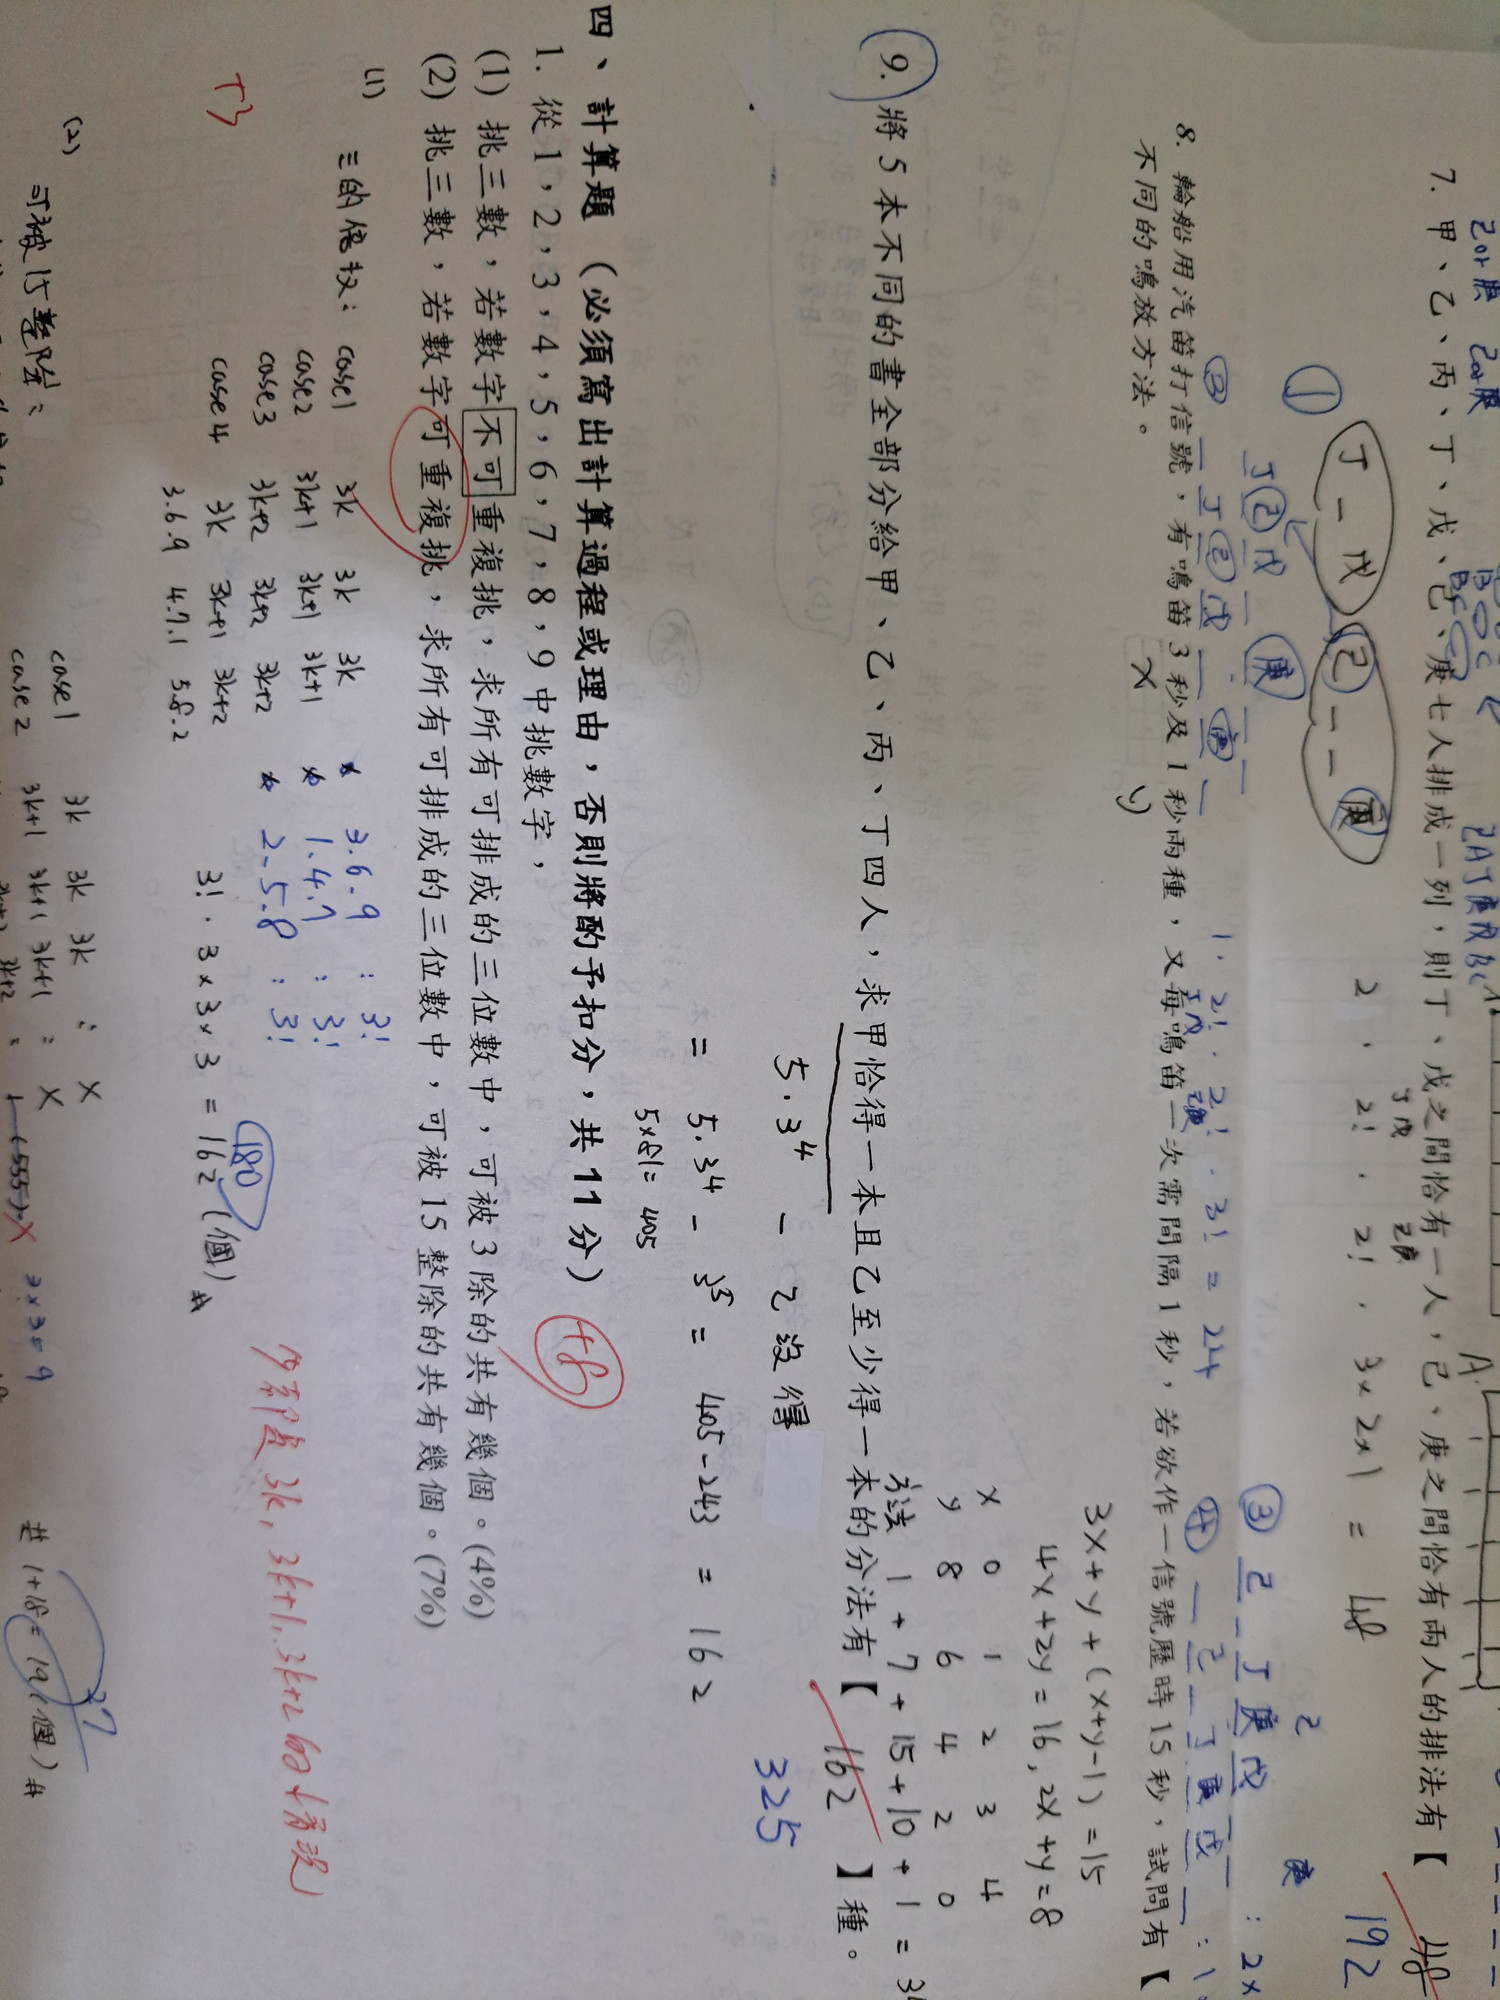 2or庚 2or庚
7. 甲、乙、丙、丁、戊、己、庚七人排成一列，則丁、戊之間恰有一人，己、庚之間恰有兩人的排法有【 48
192
① 丁 — 戊 己 — — 庚
2 · 2! · 2! · 3×2×1 = 48
丁戊 己庚
丁 己 戊 — 庚 — —
② — 丁 己 戊 — 庚 —
1 · 2! · 2! · 3! = 24
丁戊 己庚
③ 己 — 丁 庚 戊 — —
④ — 己 — 丁 庚 戊 —
8. 輪船用汽笛打信號，有鳴笛 3 秒及 1 秒兩種，又每鳴笛一次需間隔 1 秒，若欲作一信號歷時 15 秒，試問有【
不同的鳴放方法。
x y
3x+y+(x+y-1)=15
4x+2y=16, 2x+y=8
x 0 1 2 3 4
y 8 6 4 2 0
方法 1+7+15+10+1=34
9. 將 5 本不同的書全部分給甲、乙、丙、丁四人，求甲恰得一本且乙至少得一本的分法有【 162 】種。
325
5·3⁴ - 乙沒得
= 5·3⁴ - 3⁵ = 405-243 = 162
5×81=405
四、計算題（必須寫出計算過程或理由，否則將酌予扣分，共 11 分）
+8
1. 從 1，2，3，4，5，6，7，8，9 中挑數字，
(1) 挑三數，若數字不可重複挑，求所有可排成的三位數中，可被 3 除的共有幾個。(4%)
(2) 挑三數，若數字可重複挑，求所有可排成的三位數中，可被 15 整除的共有幾個。(7%)
(1) 三的倍數： case1 3k 3k 3k * 3.6.9 : 3!
case2 3k+1 3k+1 3k+1 * 1.4.7 : 3!
case3 3k+2 3k+2 3k+2 * 2.5.8 : 3!
case4 3k 3k+1 3k+2
3.6.9 4.7.1 5.8.2
3!·3×3×3=162(個)#
180
少都是3k, 3k+1, 3k+2的情況
(2) 可被15整除：
case1 3k 3k 3k : X
case2 3k+1 3k+1 3k+1 : X
3×3=9
共 1+18=19(個)#
27